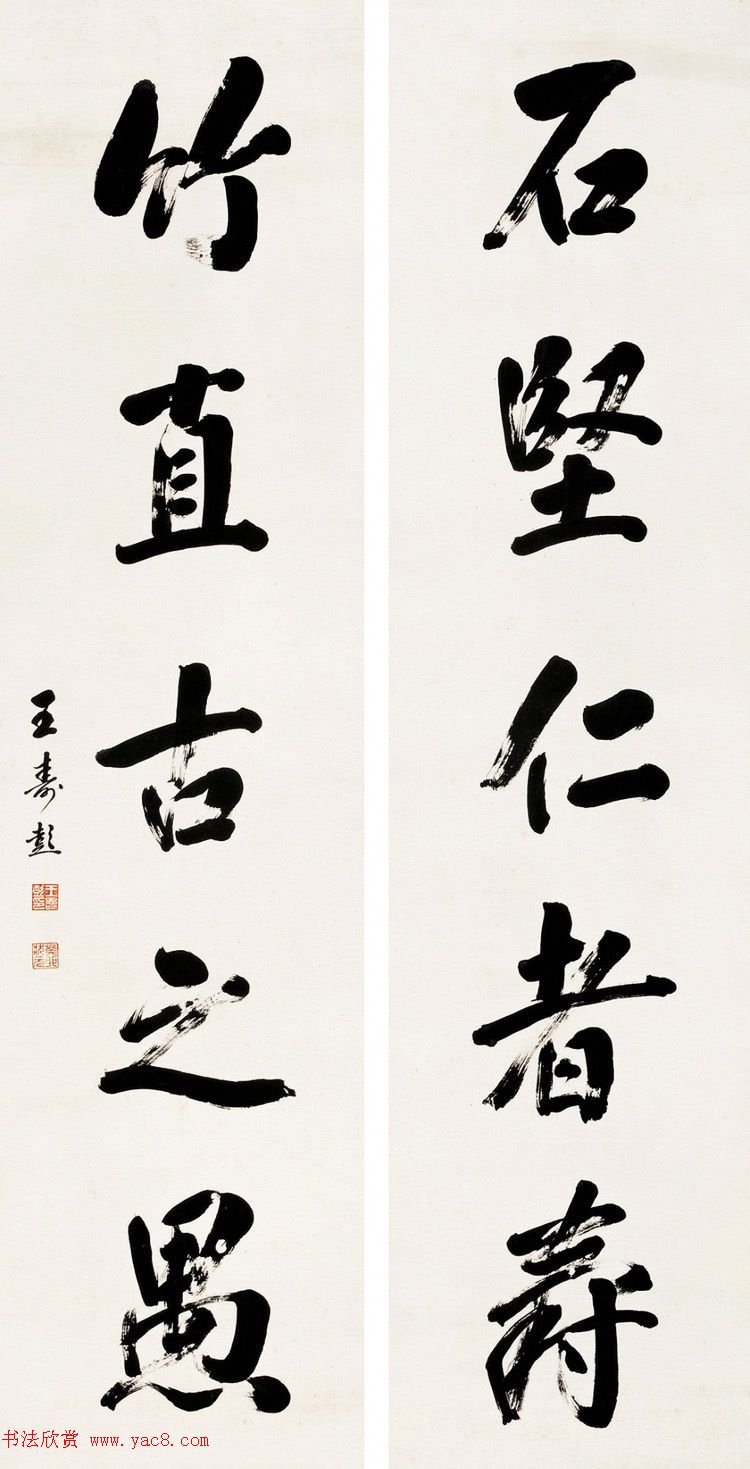 石堅仁者壽
竹直古之愚
王壽彭
书法欣赏 www.yac8.com